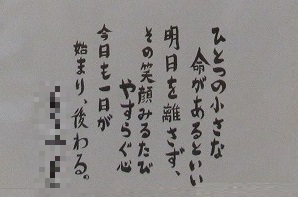 ひとつの小さな
命があるといい
明日を離さず、
その笑顔みるたび
やすらぐ心
今日も一日が
始まり、後わる。